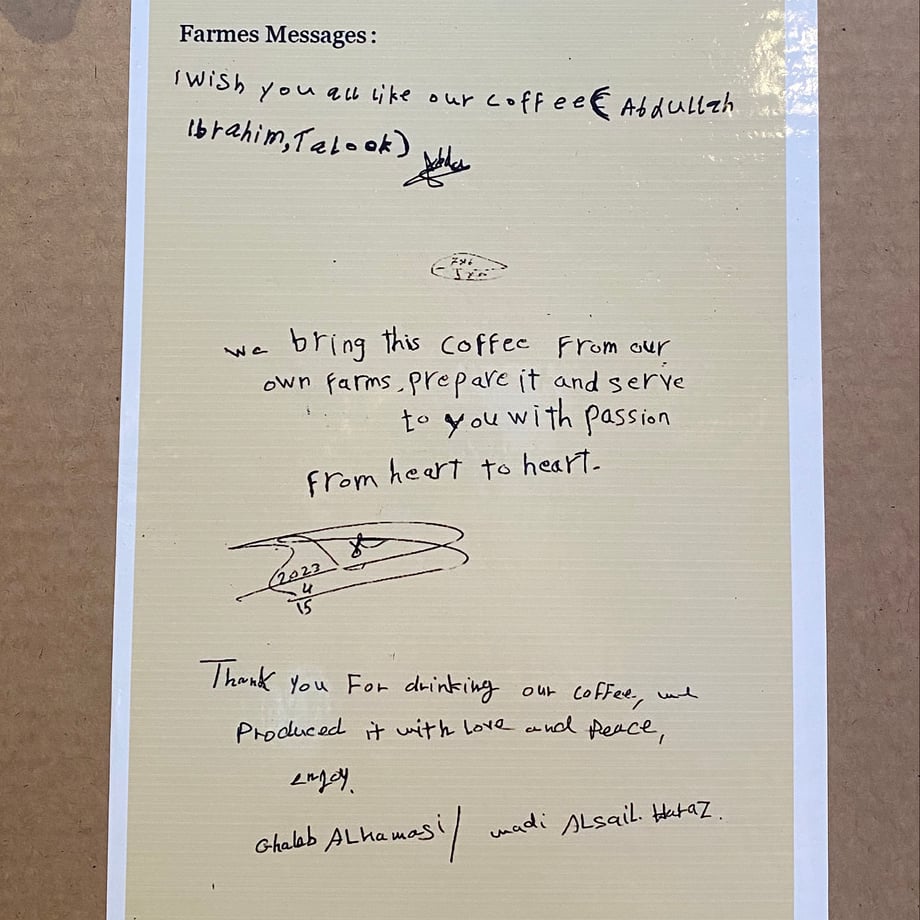 Farmes Messages:
I wish you all like our coffee ( Abdullah
Ibrahim, Talook)
we bring this coffee from our
own farms, prepare it and serve
to you with passion
from heart to heart.
2023
4
15
Thank you For drinking our coffee, we
produced it with love and peace,
enjoy.
Ghaleb ALhamasi / wadi ALsail. Haraz.